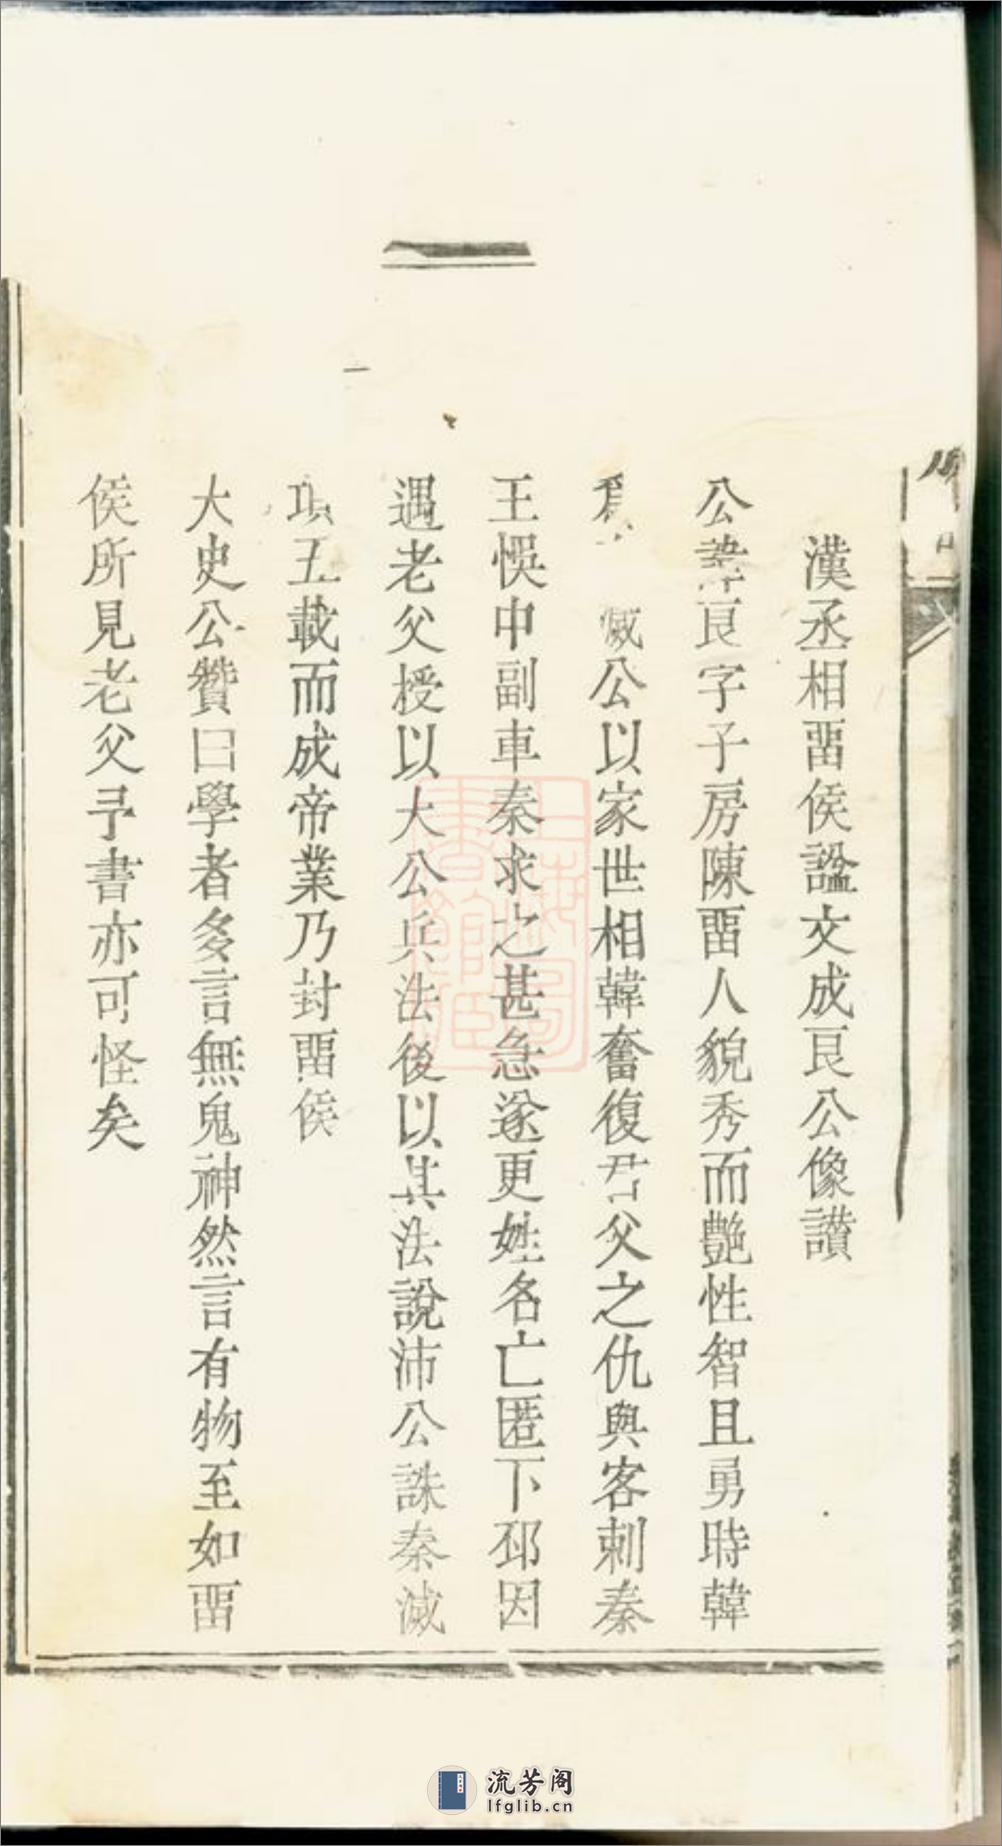 漢丞相畱侯諡文成良公像讃
公諱良字子房陳畱人貌秀而艷性智且勇時韓
爲 滅公以家世相韓奮復君父之仇與客刺秦
王悞中副車秦求之甚急遂更姓名亡匿下邳因
遇老父授以大公兵法後以其法說沛公誅秦滅
項五載而成帝業乃封畱侯
大史公贊曰學者多言無鬼神然言有物至如畱
侯所見老父予書亦可怪矣
上海圖書館藏
流芳阁
lfglib.cn